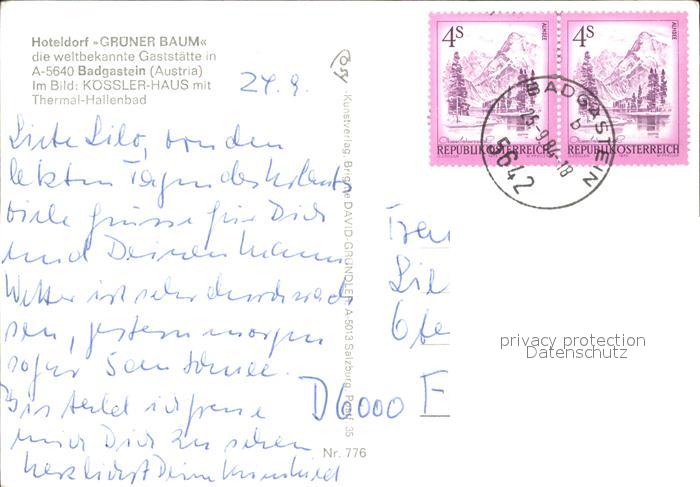 Hoteldorf »GRÜNER BAUM«
die weltbekannte Gaststätte in
A-5640 Badgastein (Austria)
Im Bild: KÖSSLER-HAUS mit
Thermal-Hallenbad
24. 9.
Liebe Lilo, von den
letzten Tagen des Urlaubs
viele Grüsse für Dich
und Deinen Mann
Wetter ist sehr durchwach
sen, gestern morgen
sogar 5 cm Schnee.
Bis bald ich freue
mich Dich zu sehen
herzlichst Deine
Kunstverlag Brigitte DAVID-GRÜNDLER, A-5013 Salzburg, Postf. 35
Nr. 776
4s
ALMSEE
REPUBLIK ÖSTERREICH
4s
ALMSEE
REPUBLIK ÖSTERREICH
BADGASTEIN
25.-9.84-18
b
5642
Frau
Lil
D 6000 F
privacy protection
Datenschutz